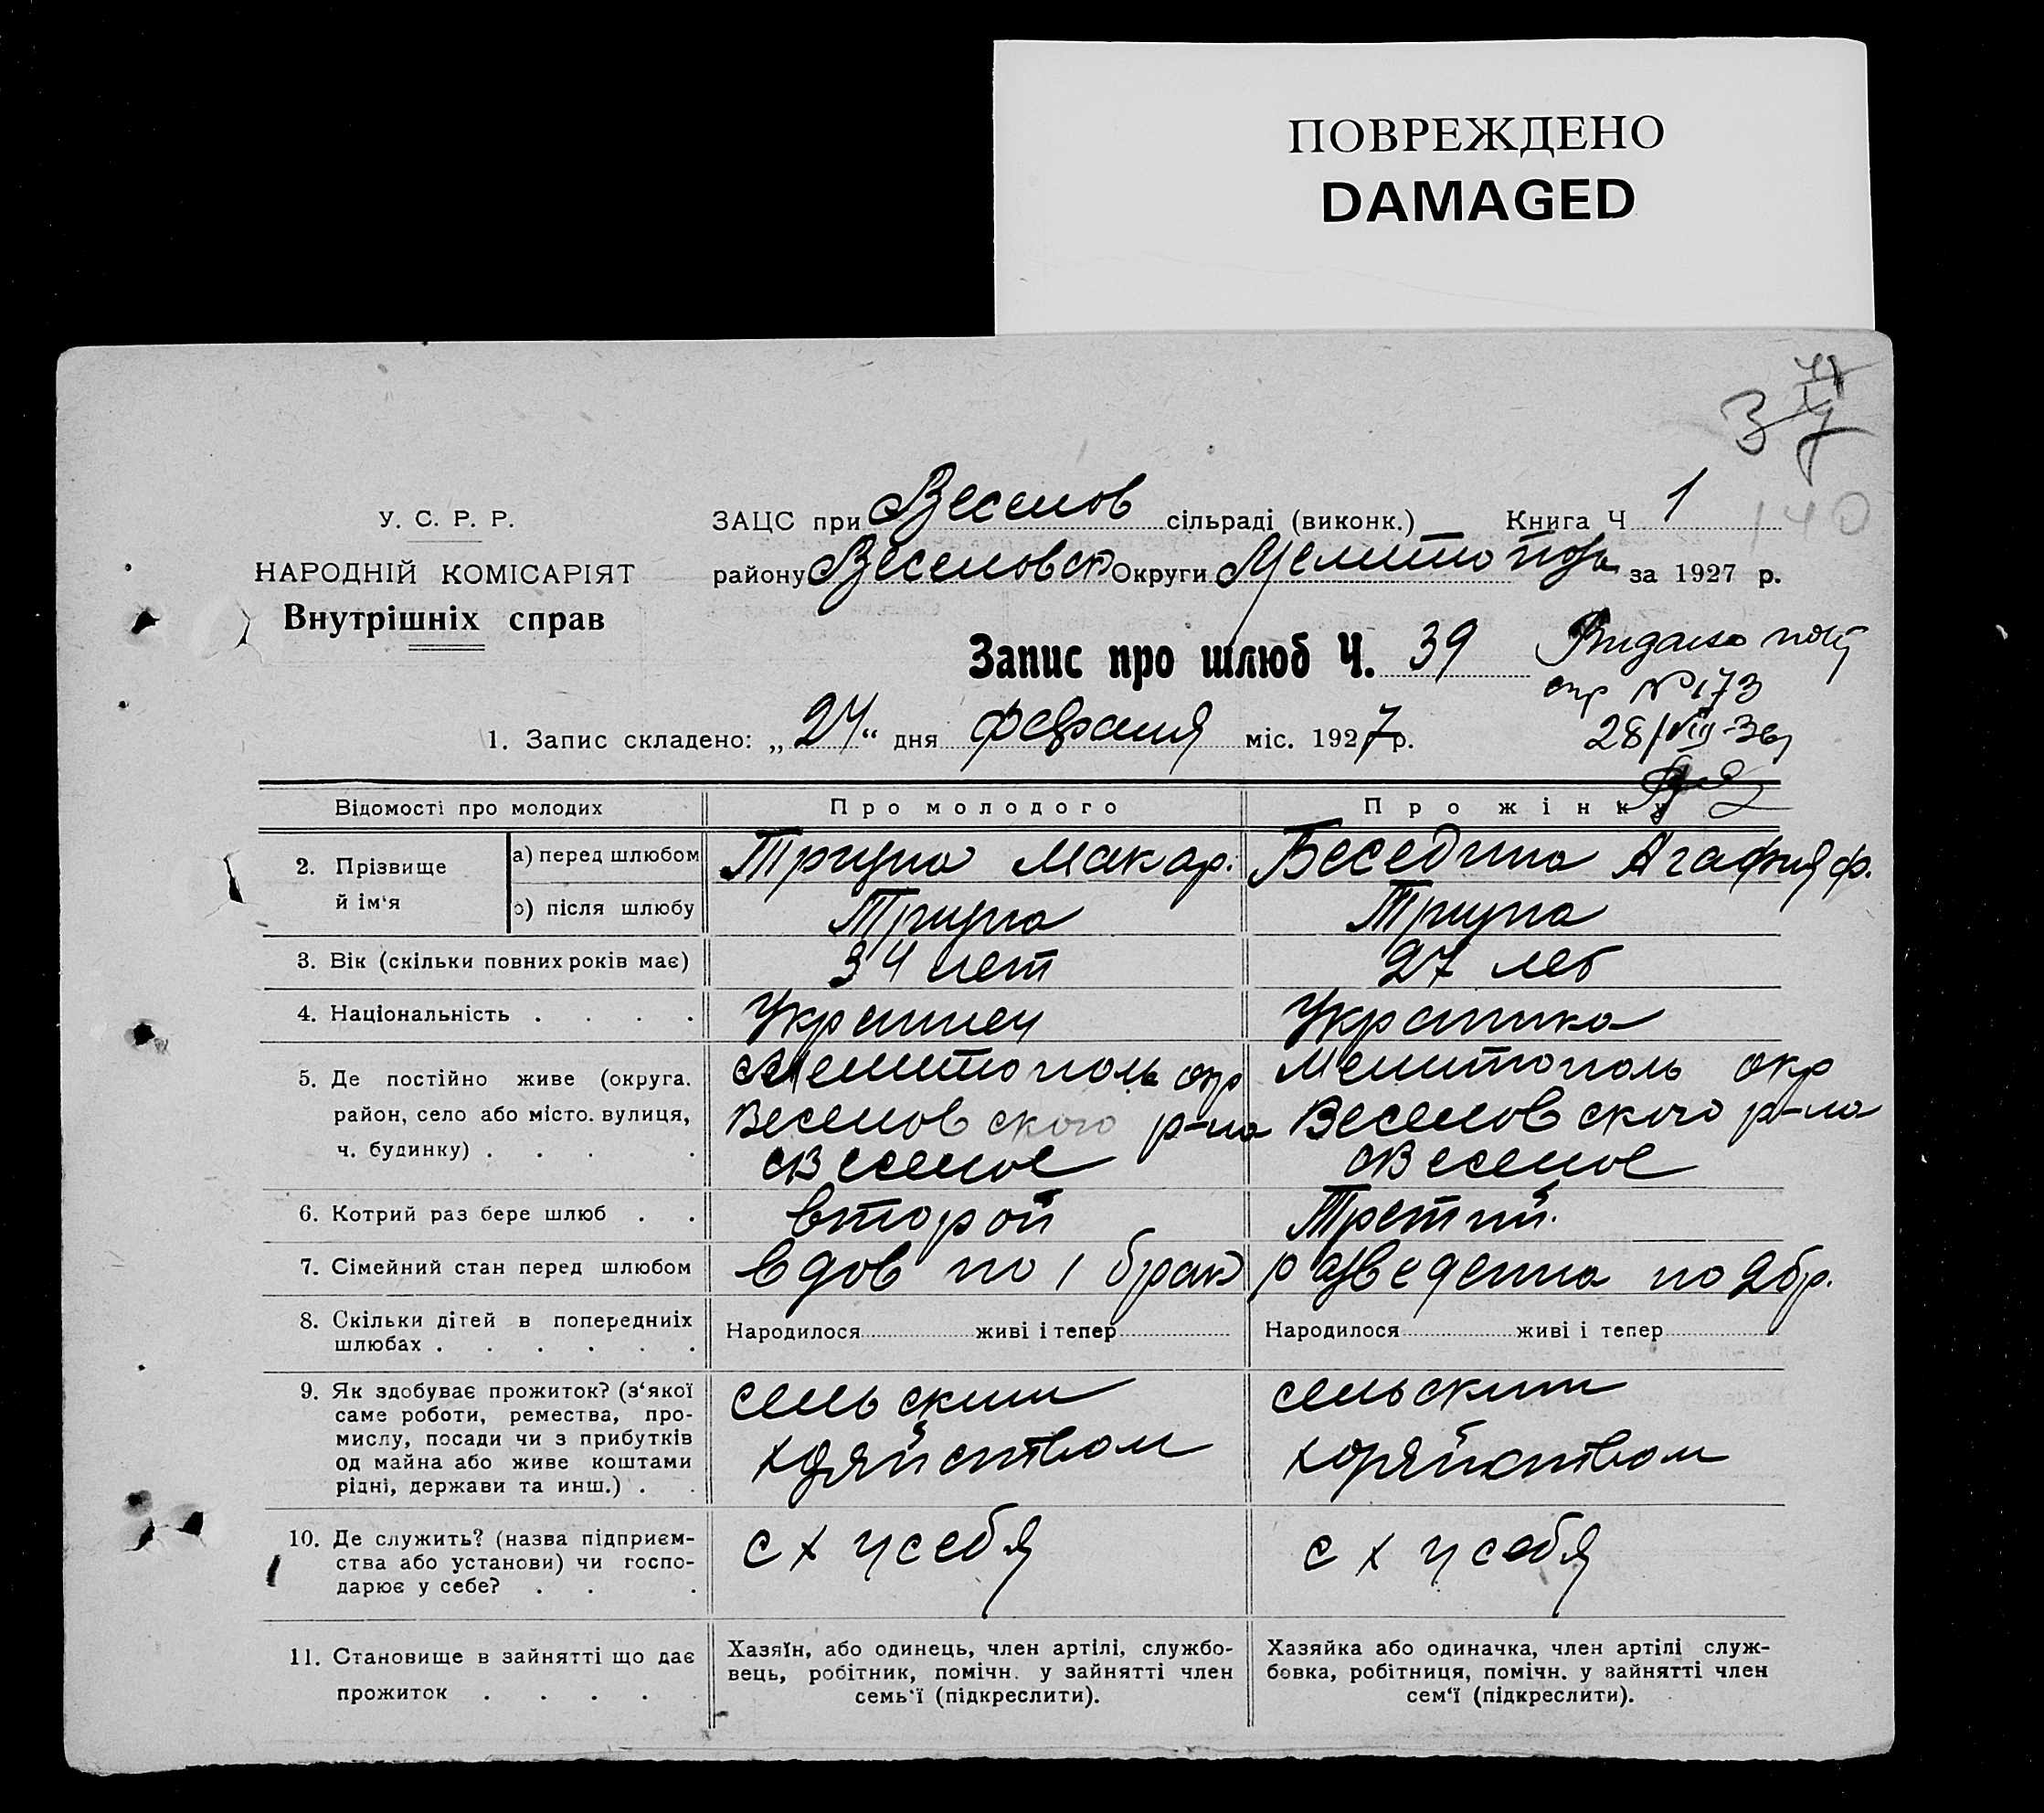 ПОВРЕЖДЕНО
DAMAGED
37
У. С. Р. Р.
НАРОДНІЙ КОМІСАРІЯТ
Внутрішніх справ
ЗАЦС при Веселов сільраді (виконк.) Книга Ч 1
140
району Веселовск Округи Мелитоп за 1927 р.
Запис про шлюб Ч. 39
Видано
№ 173
28/VIII-36
1. Запис складено: „24“ дня февраля міс. 1927 р.
Відомості про молодих Про молодого Про жінку
2. Прізвище й ім‘я
а) перед шлюбом Трица Макар. Беседина Агафия Ф.
б) після шлюбу Трица Трица
3. Вік (скільки повних років має) 34 лет 27 лет
4. Національність . . . . Украинец Украинка
5. Де постійно живе (округа. Мелитополь окр Мелитополь окр
район, село або місто. вулиця, Веселовского р-на Веселовского р-на
ч. будинку) . . . . с Веселое с Веселое
6. Котрий раз бере шлюб . . второй Третий.
7. Сімейний стан перед шлюбом вдов по 1 брак разведенна по 2 бр.
8. Скільки дітей в попередниіх
шлюбах . . . . . . Народилося живі і тепер Народилося живі і тепер
9. Як здобуває прожиток? (з‘якої сельским сельским
саме роботи, ремества, про-
мислу, посади чи з прибутків хозяйством хозяйством
од майна або живе коштами
рідні, держави та инш.) . .
10. Де служить? (назва підприєм- с х у себя с х у себя
ства або установи) чи госпо-
дарює у себе? . . .
11. Становище в зайнятті що дає
прожиток . . . . .
Хазяїн, або одинець, член артілі, службо-
вець, робітник, помічн. у зайнятті член
семь‘ї (підкреслити).
Хазяйка або одиначка, член артілі служ-
бовка, робітниця, помічн. у зайнятті член
сем‘ї (підкреслити).